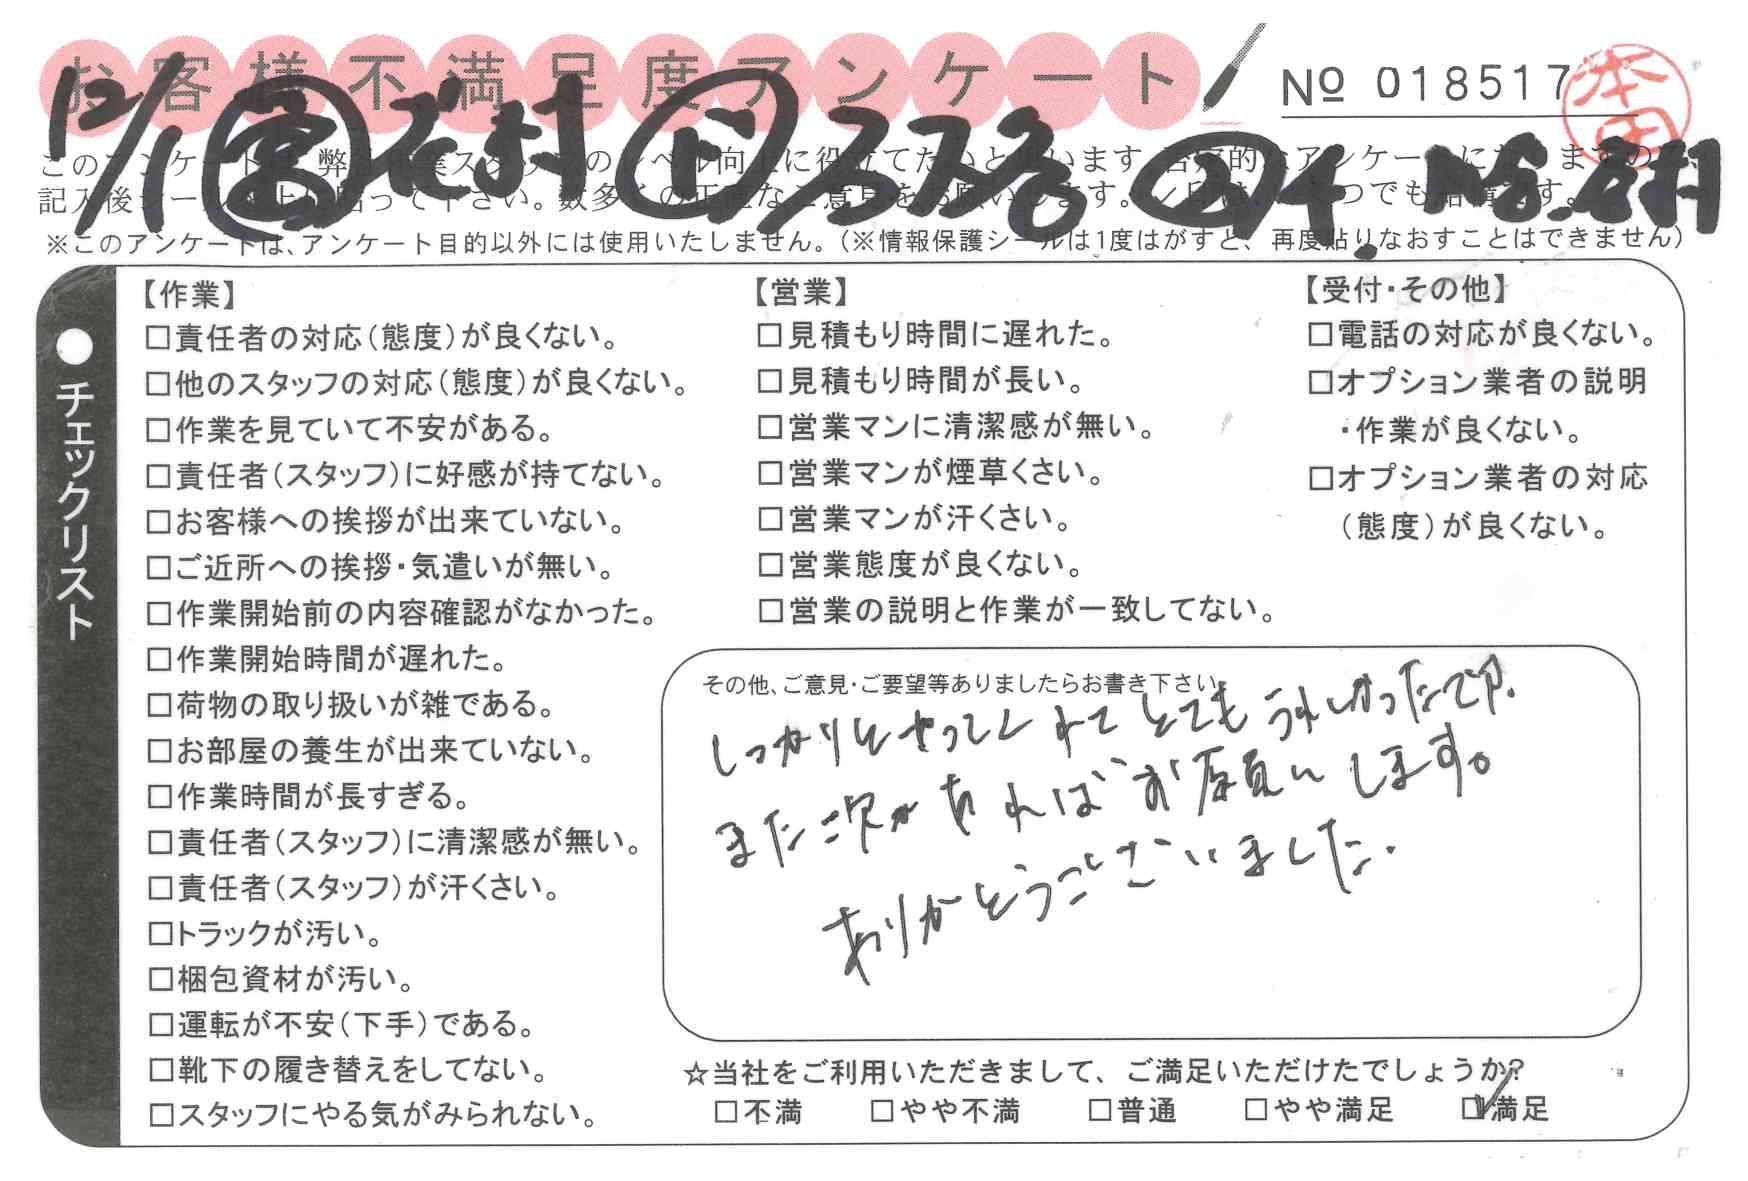 お客様不満足度アンケート
No 018517
本田
12/1 営 ド メ
※このアンケートは、アンケート目的以外には使用いたしません。（※情報保護シールは1度はがすと、再度貼りなおすことはできません）
●チェックリスト
【作業】
□責任者の対応（態度）が良くない。
□他のスタッフの対応（態度）が良くない。
□作業を見ていて不安がある。
□責任者（スタッフ）に好感が持てない。
□お客様への挨拶が出来ていない。
□ご近所への挨拶・気遣いが無い。
□作業開始前の内容確認がなかった。
□作業開始時間が遅れた。
□荷物の取り扱いが雑である。
□お部屋の養生が出来ていない。
□作業時間が長すぎる。
□責任者（スタッフ）に清潔感が無い。
□責任者（スタッフ）が汗くさい。
□トラックが汚い。
□梱包資材が汚い。
□運転が不安（下手）である。
□靴下の履き替えをしてない。
□スタッフにやる気がみられない。
【営業】
□見積もり時間に遅れた。
□見積もり時間が長い。
□営業マンに清潔感が無い。
□営業マンが煙草くさい。
□営業マンが汗くさい。
□営業態度が良くない。
□営業の説明と作業が一致してない。
【受付・その他】
□電話の対応が良くない。
□オプション業者の説明
・作業が良くない。
□オプション業者の対応
（態度）が良くない。
その他、ご意見・ご要望等ありましたらお書き下さい。
しっかりとやってくれてとてもうれしかったです.
また次があればお願いします。
ありがとうございました.
☆当社をご利用いただきまして、ご満足いただけたでしょうか?
□不満 □やや不満 □普通 □やや満足 ☑満足